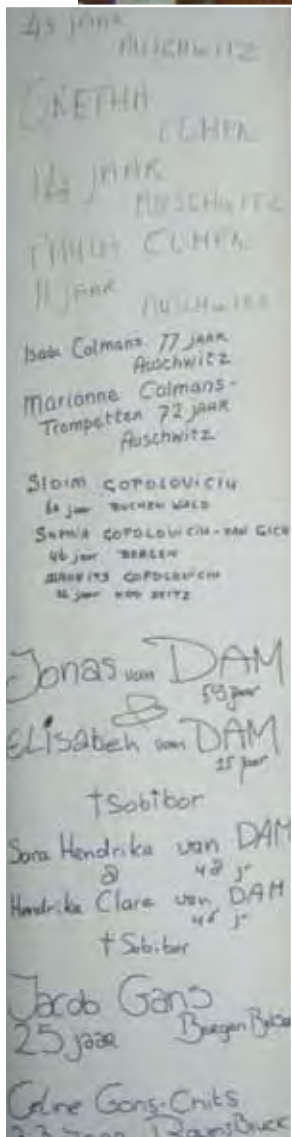 43 JAAR
AUSCHWITZ
GRETHA
14 JAAR
AUSCHWITZ
11 JAAR
AUSCHWITZ
Isaac Colmans 77 JAAR
Auschwitz
Marianne Colmans-
Trompetten 72 JAAR
Auschwitz
SLOIM GOPOLOVICIU
jaar BUCHENWALD
SOPHIA GOPOLOVICIU-VAN GICH
46 jaar BERGEN
MAURITS GOPOLOVICIU
jaar
Jonas van DAM
59 jaar
ELisabeh van DAM
jaar
†Sobibor
Sara Hendrika van DAM
jr
Hendrika Clara van DAM
jr
† Sobibor
Jacob Gans
25 jaar Bergen
Celine Gans-Cnits